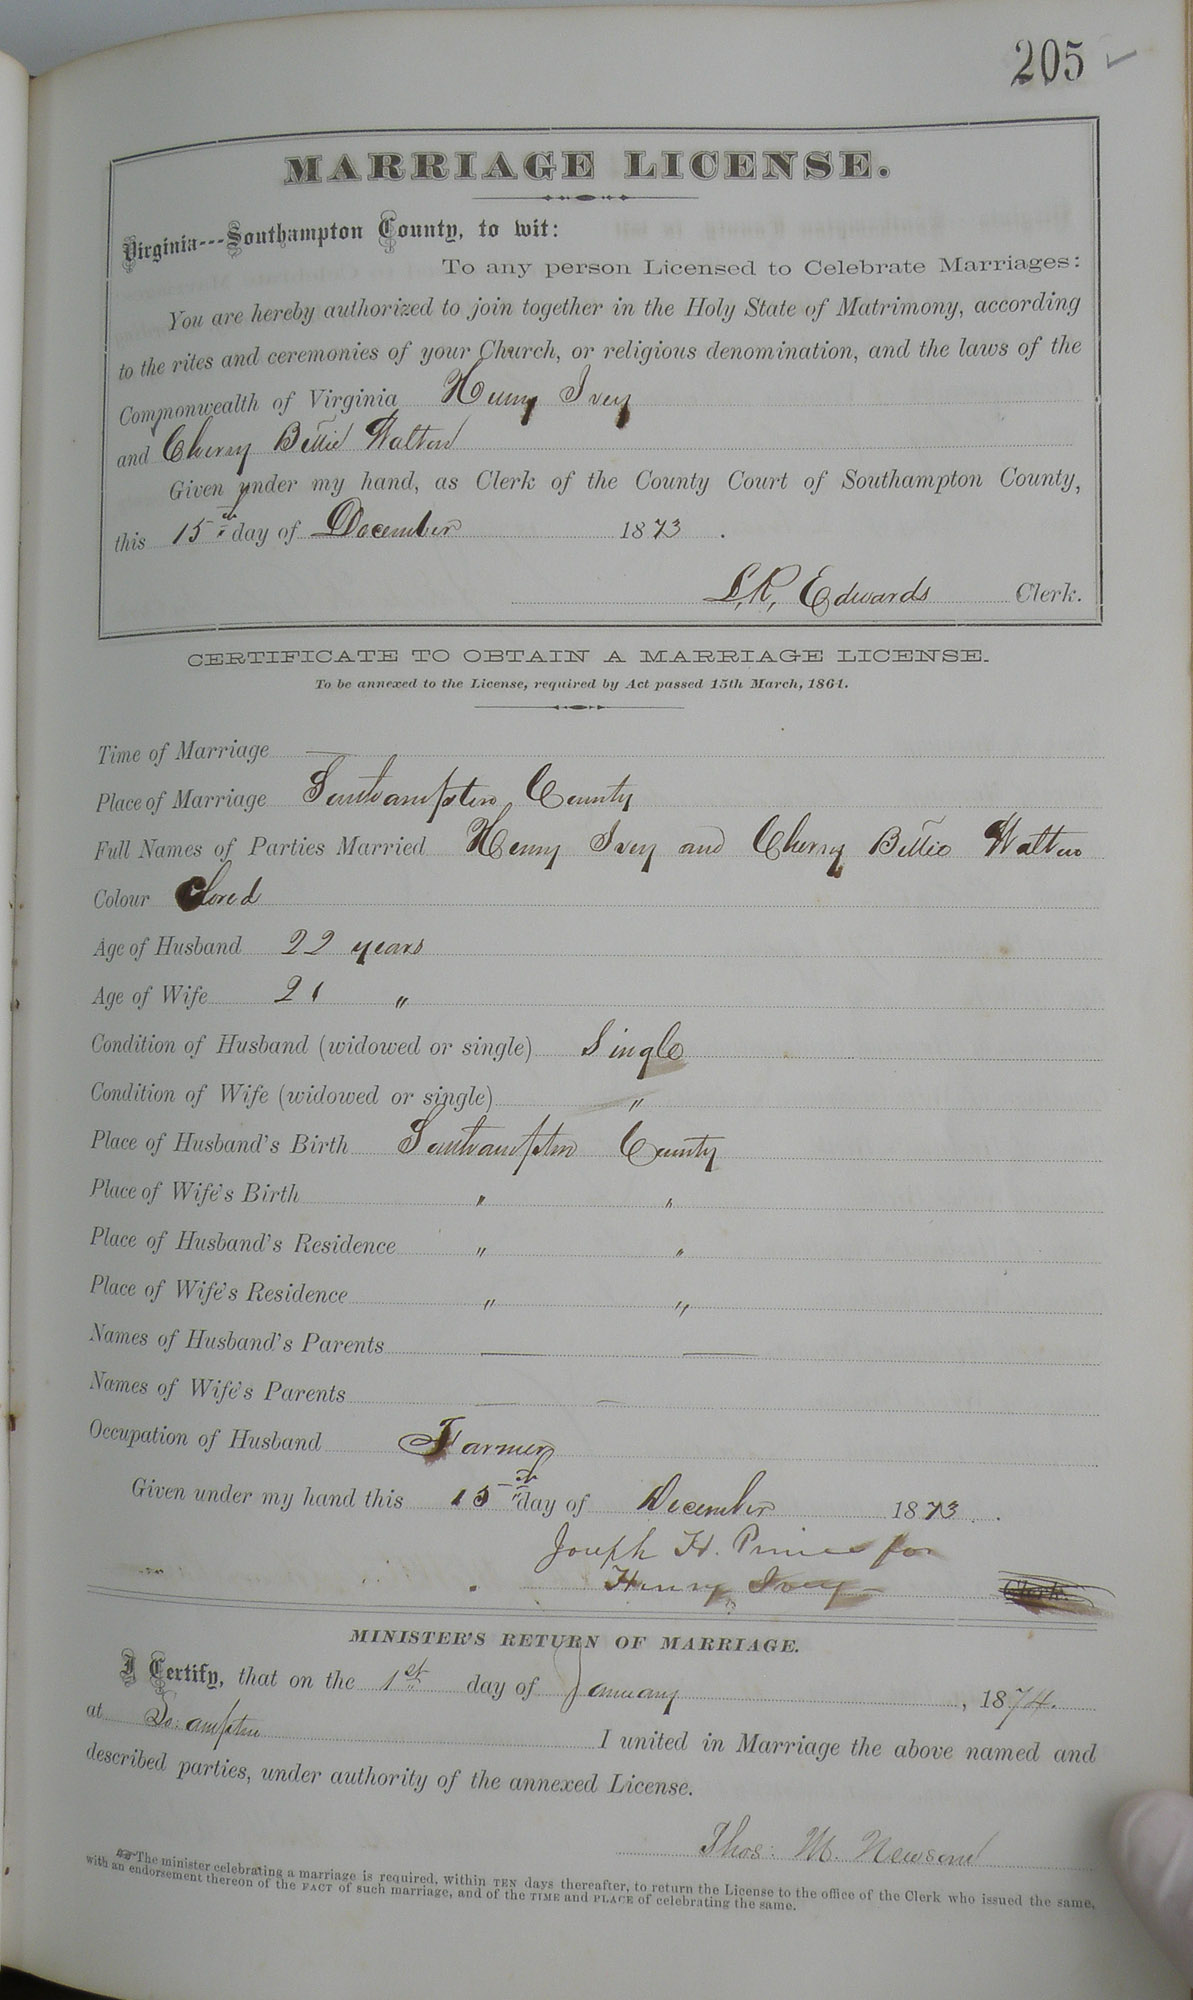 205 ✓
MARRIAGE LICENSE.
Virginia---Southampton County, to wit:
To any person Licensed to Celebrate Marriages:
You are hereby authorized to join together in the Holy State of Matrimony, according
to the rites and ceremonies of your Church, or religious denomination, and the laws of the
Commonwealth of Virginia Henry Ivey
and Cherry Bettie Walton
Given under my hand, as Clerk of the County Court of Southampton County,
this 15th day of December 1873.
L. R. Edwards Clerk.
CERTIFICATE TO OBTAIN A MARRIAGE LICENSE.
To be annexed to the License, required by Act passed 15th March, 1861.
Time of Marriage —
Place of Marriage Southampton County
Full Names of Parties Married Henry Ivey and Cherry Bettie Walton
Colour Colored
Age of Husband 22 years
Age of Wife 21 "
Condition of Husband (widowed or single) Single
Condition of Wife (widowed or single) "
Place of Husband's Birth Southampton County
Place of Wife's Birth " "
Place of Husband's Residence " "
Place of Wife's Residence " "
Names of Husband's Parents — —
Names of Wife's Parents — —
Occupation of Husband Farmer
Given under my hand this 15th day of December 1873.
Joseph H. Prince for
Henry Ivey Clerk.
MINISTER'S RETURN OF MARRIAGE.
I Certify, that on the 1st day of January, 1874.
at So:ampton I united in Marriage the above named and
described parties, under authority of the annexed License.
Thos: M. Newsom
The minister celebrating a marriage is required, within TEN days thereafter, to return the License to the office of the Clerk who issued the same,
with an endorsement thereon of the FACT of such marriage, and of the TIME and PLACE of celebrating the same.